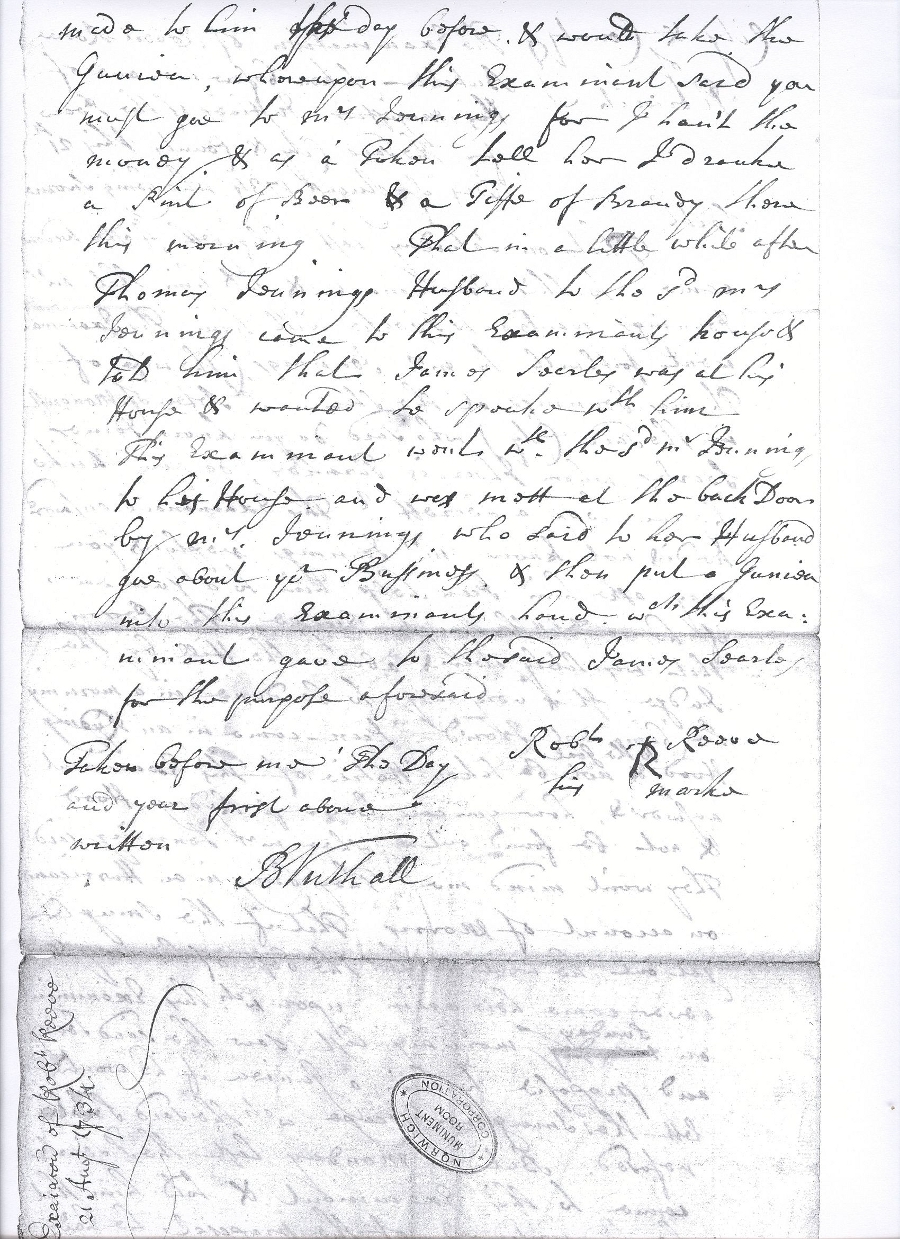 made to him day before. & would take the
Guniea, whereupon this Examinant said you
must goe to mrs Jennings for I han't the
money & as a Token tell her I dranke
a Pint of Beer & a Tiffe of Brandy there
this morning That in a little while after
Thomas Jennings Husband to the sd mrs
Jennings came to this Examinants house &
told him that James Searles was at his
House & wanted to speake wth him
This Examinant went wth. the sd mr Jennings
to his House and was mett at the back Door
by mrs Jennings who said to her Husband
goe about yr Bussiness. & then put a Guniea
into this Examinants hand wch this Exa:
minant gave to the said James Searles
for the purpose aforesaid
Robt R Reeve
his marke
Taken before me The Day
and year first above
written
B Nuthall
Exaiacon of Robt Reeve
21 Augt 1734.
NORWICH CORPORATION
MUNIMENT ROOM